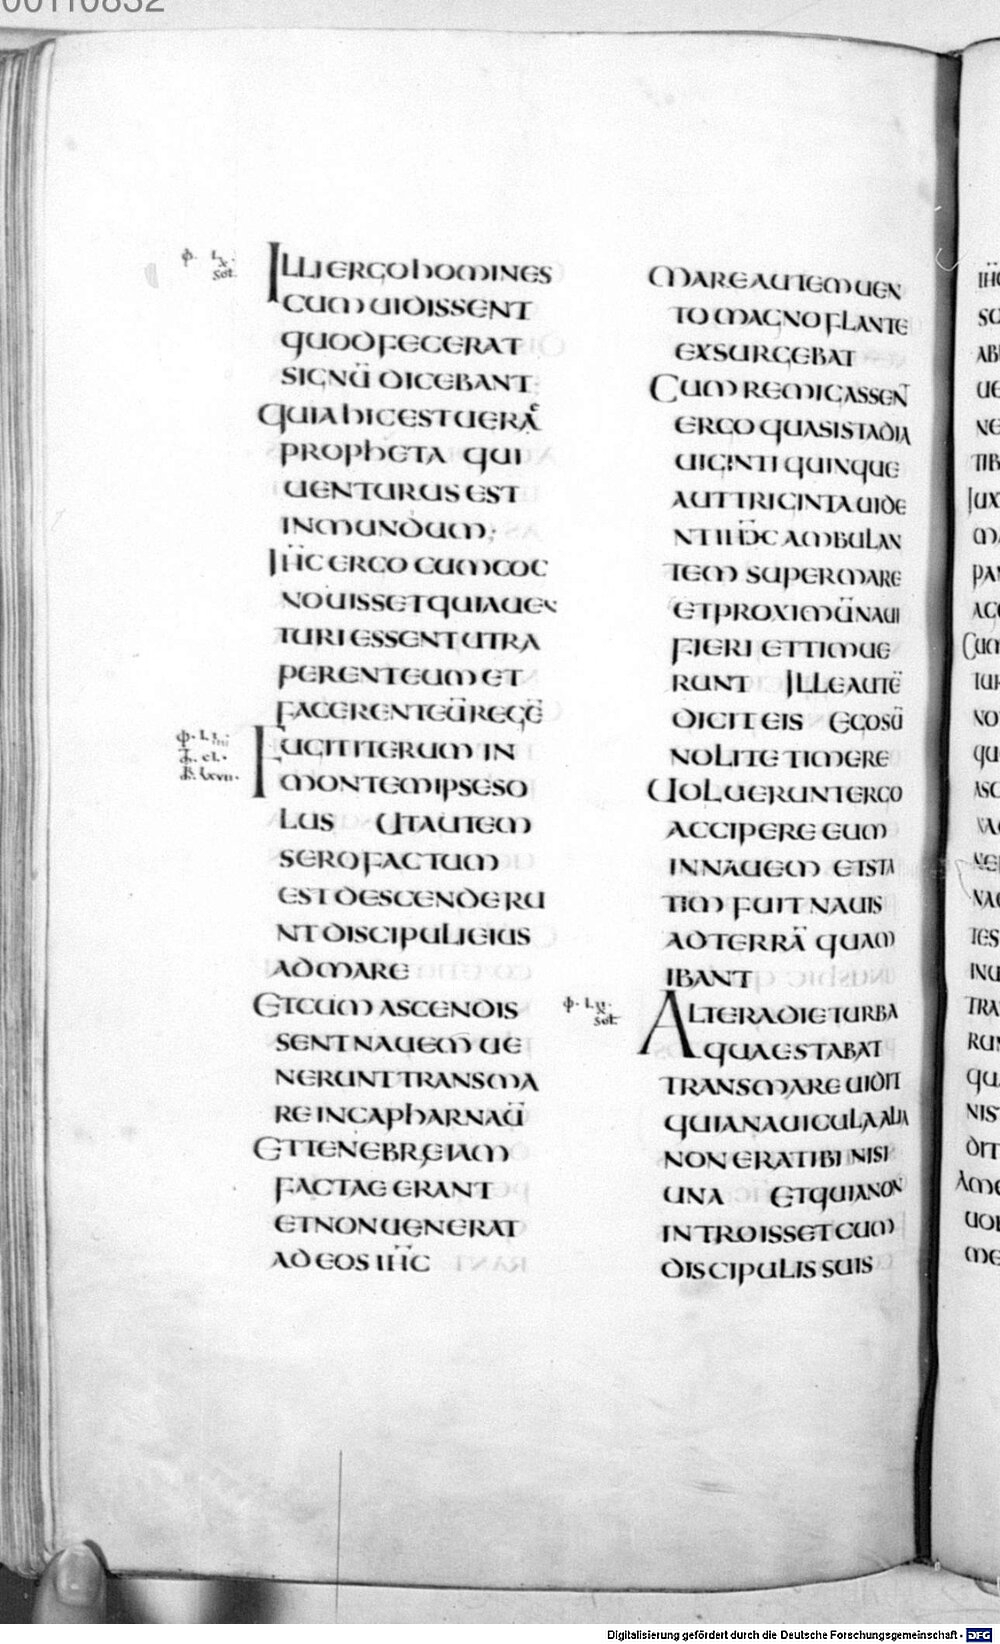 00110832
ILLIERGOHOMINES
CUMUIDISSENT
QUODFECERAT
SIGNŪ DICEBANT
QUIAHICESTUERAE
PROPHETA QUI
UENTURUS EST
INMUNDUM;
IHC̄ ERGO CUMCOG
NOUISSETQUIAUEN
TURIESSENTUTRA
PERENTEUMET
FACERENTEŪREGĒ
FUGITITERUMIN
MONTEMIPSESO
LUS UTAUTEM
SEROFACTUM
ESTDESCENDERU
NTDISCIPULIEIUS
ADMARE
ETCUMASCENDIS
SENTNAUEMUE
NERUNTTRANSMA
REINCAPHARNAŪ
ETTENEBRĘIAM
FACTAEERANT
ETNONUENERAT
ADEOSIHC̄
MAREAUTEMUEN
TOMAGNOFLANTE
EXSURGEBAT
CUMREMIGASSEN̄
ERGOQUASISTADIA
UIGINTIQUINQUE
AUTTRIGINTAUIDE
NTIHC̄ AMBULAN
TEM SUPERMARE
ETPROXIMŪNAUI
FIERI ETTIMUE
RUNT ILLEAUTĒ
DICITEIS EGOSŪ
NOLITETIMERE
UOLUERUNTERGO
ACCIPEREEUM
INNAUEM ETSTA
TIM FUITNAUIS
ADTERRĀ QUAM
IBANT
ALTERADIETURBA
QUAESTABAT
TRANSMAREUIDIT
QUIANAUICULAALIA
NONERATIBINISI
UNA ETQUIANON
INTROISSETCUM
DISCIPULISSUIS
Digitalisierung gefördert durch die Deutsche Forschungsgemeinschaft - DFG